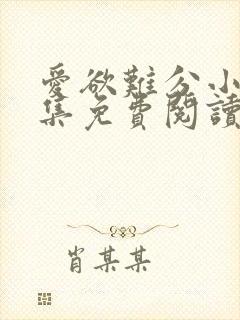 愛欲難分小
集免費閱讀
肖某某